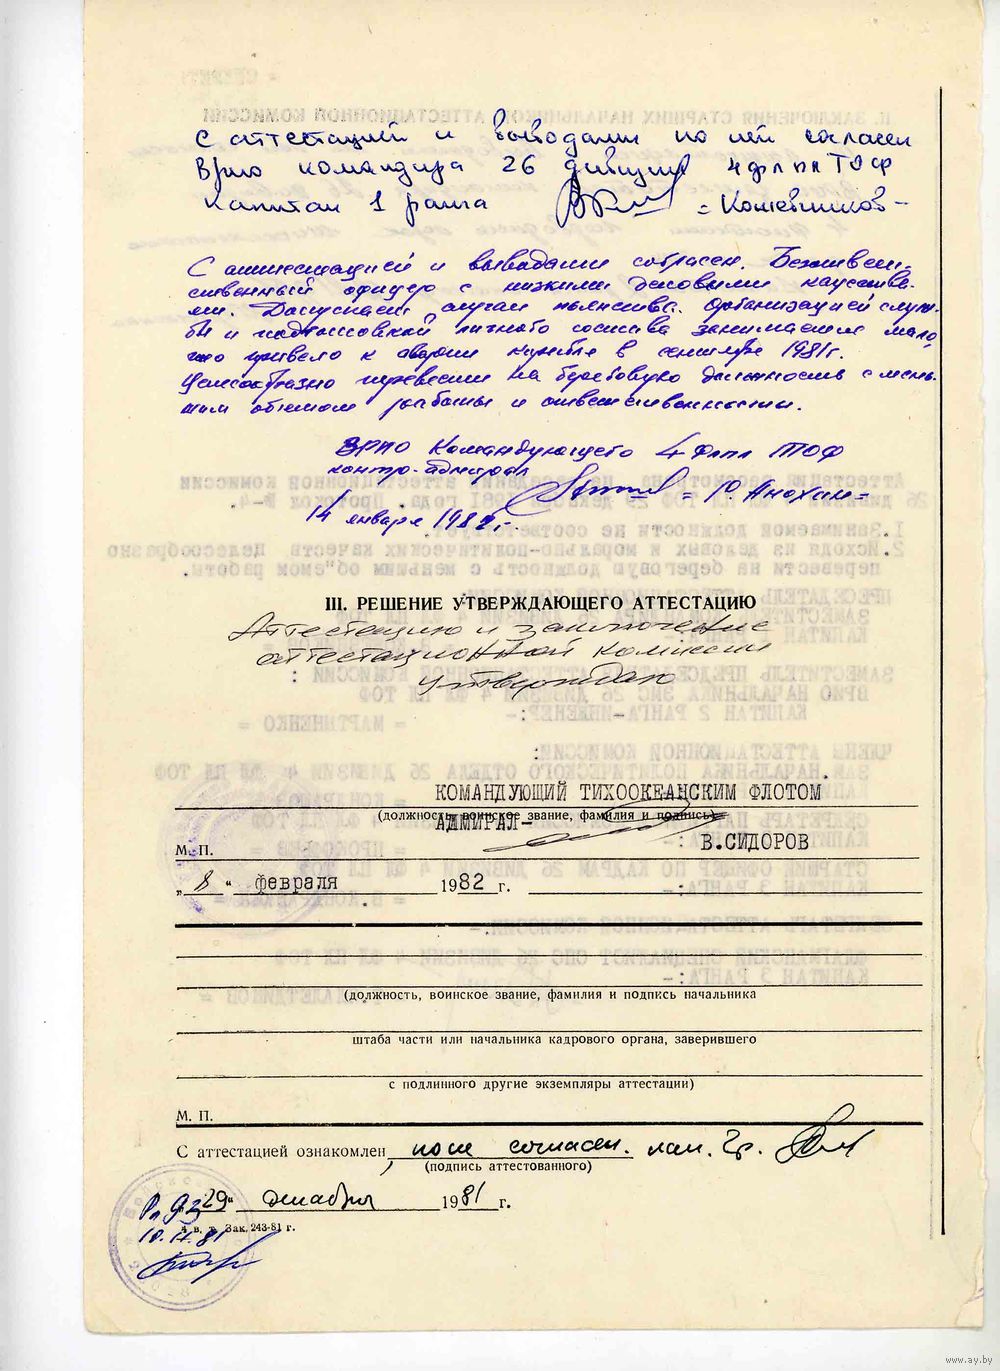 С аттестацией и выводами по ней согласен
Врио командира 26 дивизии 4 фл пл ТОФ
капитан 1 ранга = Кожевников -
С аттестацией и выводами согласен. Безответ-
ственный офицер с низкими деловыми качества-
ми. Допускает случаи пьянства. Организацией служ-
бы и подготовкой личного состава занимается мало,
что привело к аварии корабля в сентябре 1981г.
Целесообразно перевести на береговую должность с мень-
шим объемом работы и ответственностью.
ВРИО Командующего 4 Флпл ТОФ
контр-адмирал
= Анохин =
14 января 1982г.
III. РЕШЕНИЕ УТВЕРЖДАЮЩЕГО АТТЕСТАЦИЮ
Аттестацию и заключение
аттестационной комиссии
утверждаю
КОМАНДУЮЩИЙ ТИХООКЕАНСКИМ ФЛОТОМ
(должность, воинское звание, фамилия и подпись)
АДМИРАЛ-
В.СИДОРОВ
М. П.
„ 8 “ февраля 1982 г.
(должность, воинское звание, фамилия и подпись начальника
штаба части или начальника кадрового органа, заверившего
с подлинного другие экземпляры аттестации)
М. П.
С аттестацией ознакомлен, согласен. 2р.
(подпись аттестованного)
„29“ декабря 1981 г.
Зак. 243-81 г.
www.ay.by